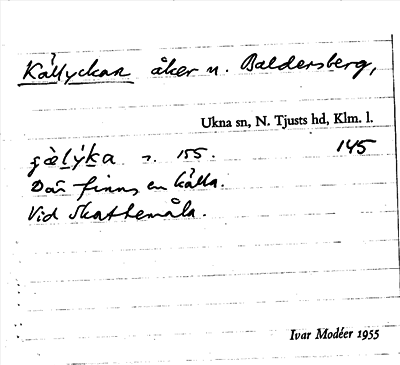 Källyckan åker n. Baldersberg,
Ukna sn, N. Tjusts hd, Klm. l.
145
155.
Där finns en källa.
Vid Skattemåla.
Ivar Modéer 1955